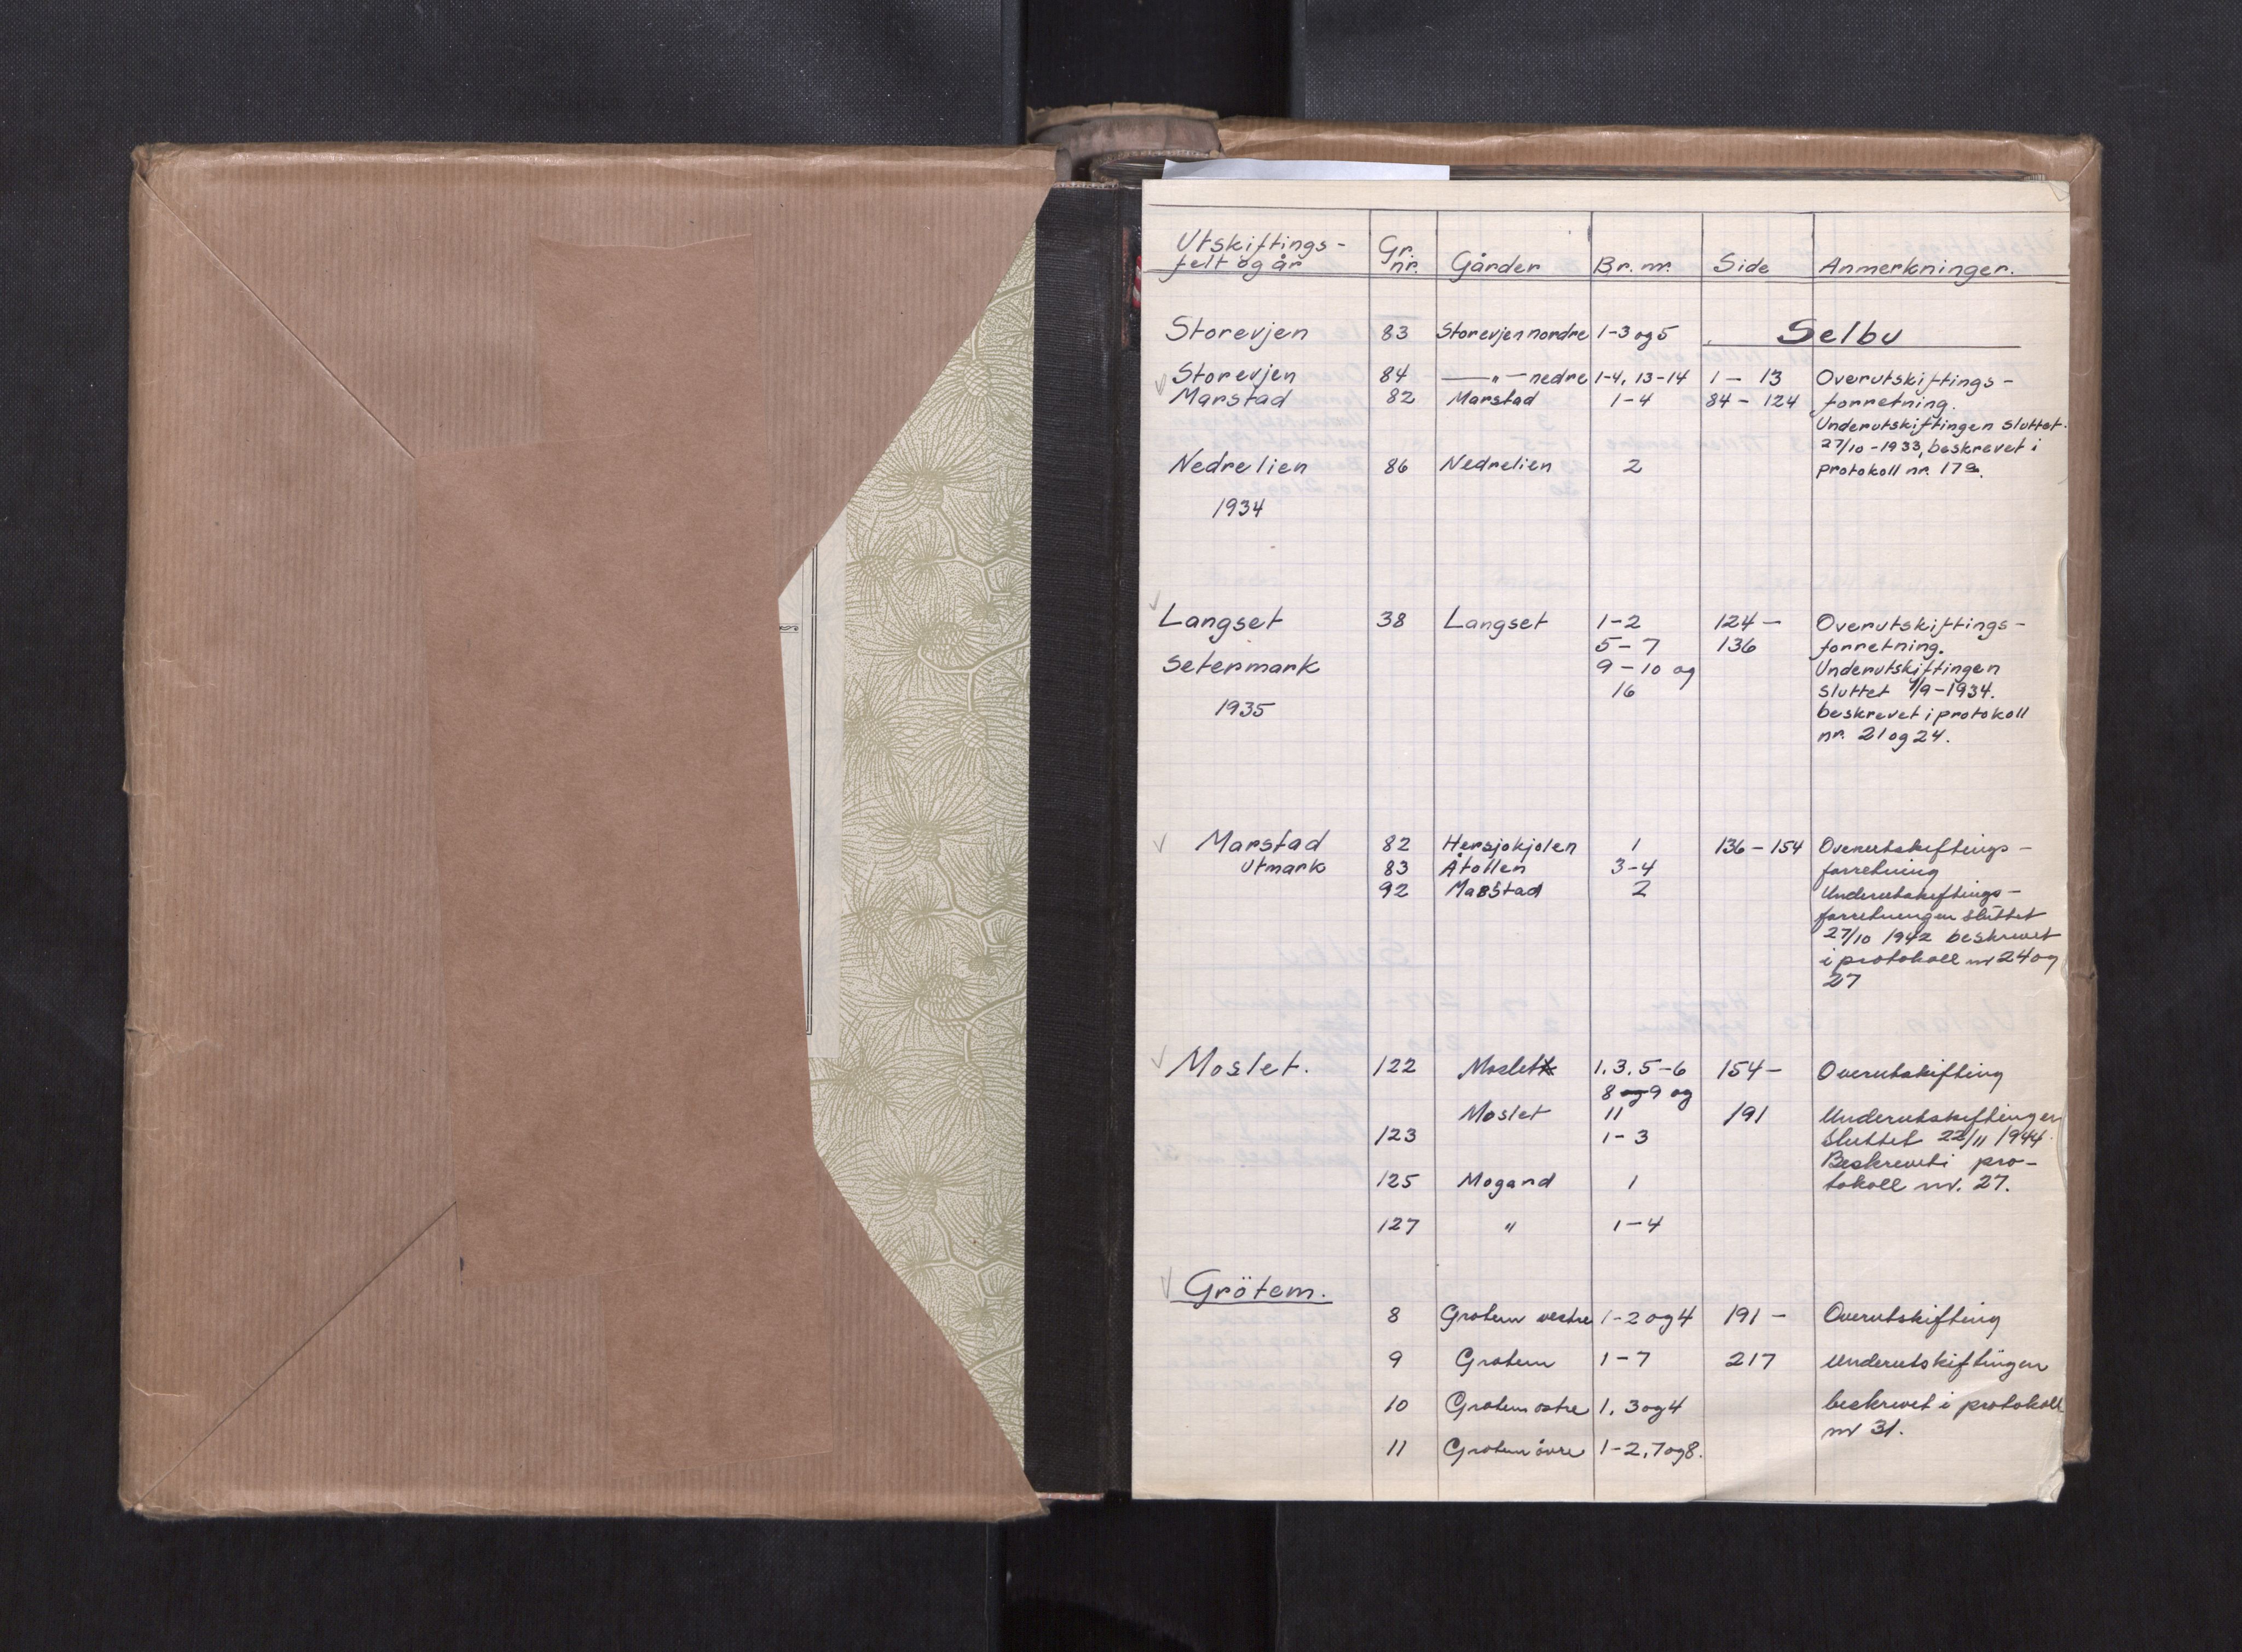 Utskiftings-
felt og år | Gr. nr. | Gårder | Br. nr. | Side | Anmerkninger.
Storevjen | 83 | Storevjen nordre | 1-3 og 5 | Selbu
Storevjen | 84 | —"— nedre | 1-4, 13-14 | 1 - 13 | Overutskiftings-
Marstad | 82 | Marstad | 1-4 | 84 - 124 | forretning.
Underutskiftingen sluttet
27/10-1933, beskrevet i
Nedrelien | 86 | Nedrelien | 2 | protokoll nr. 17a.
1934
Langset | 38 | Langset | 1-2 | 124 - | Overutskiftings-
5-7 | 136 | forretning.
Setermark | 9-10 og | Underutskiftingen
16 | sluttet 1/9-1934.
1935 | beskrevet i protokoll
nr. 21 og 24.
Marstad | 82 | Hersjokjølen | 1 | 136-154 | Overutskiftings-
utmark | 83 | Åtollen | 3-4 | forretning
92 | Marstad | 2 | Underutskiftings-
forretningen sluttet
27/10 1942 beskrevet
i protokoll nr 24 og
27
Moslet. | 122 | Moslet | 1.3.5-6 | 154- | Overutskifting
8 og 9 og
Moslet | 11 | 191 | Underutskiftingen
123 | 1-3 | sluttet 22/11 1944.
Beskrevet i pro-
125 | Mogard | 1 | tokoll nr. 27.
127 | " | 1-4
Grötem.
8 | Grøtem vestre | 1-2 og 4 | 191 - | Overutskifting
9 | Grøtem | 1-7 | 217 | Underutskiftingen
10 | Grøtem østre | 1, 3 og 4 | beskrevet i protokoll
nr 31.
11 | Grøtem övre | 1-2, 7 og 8.